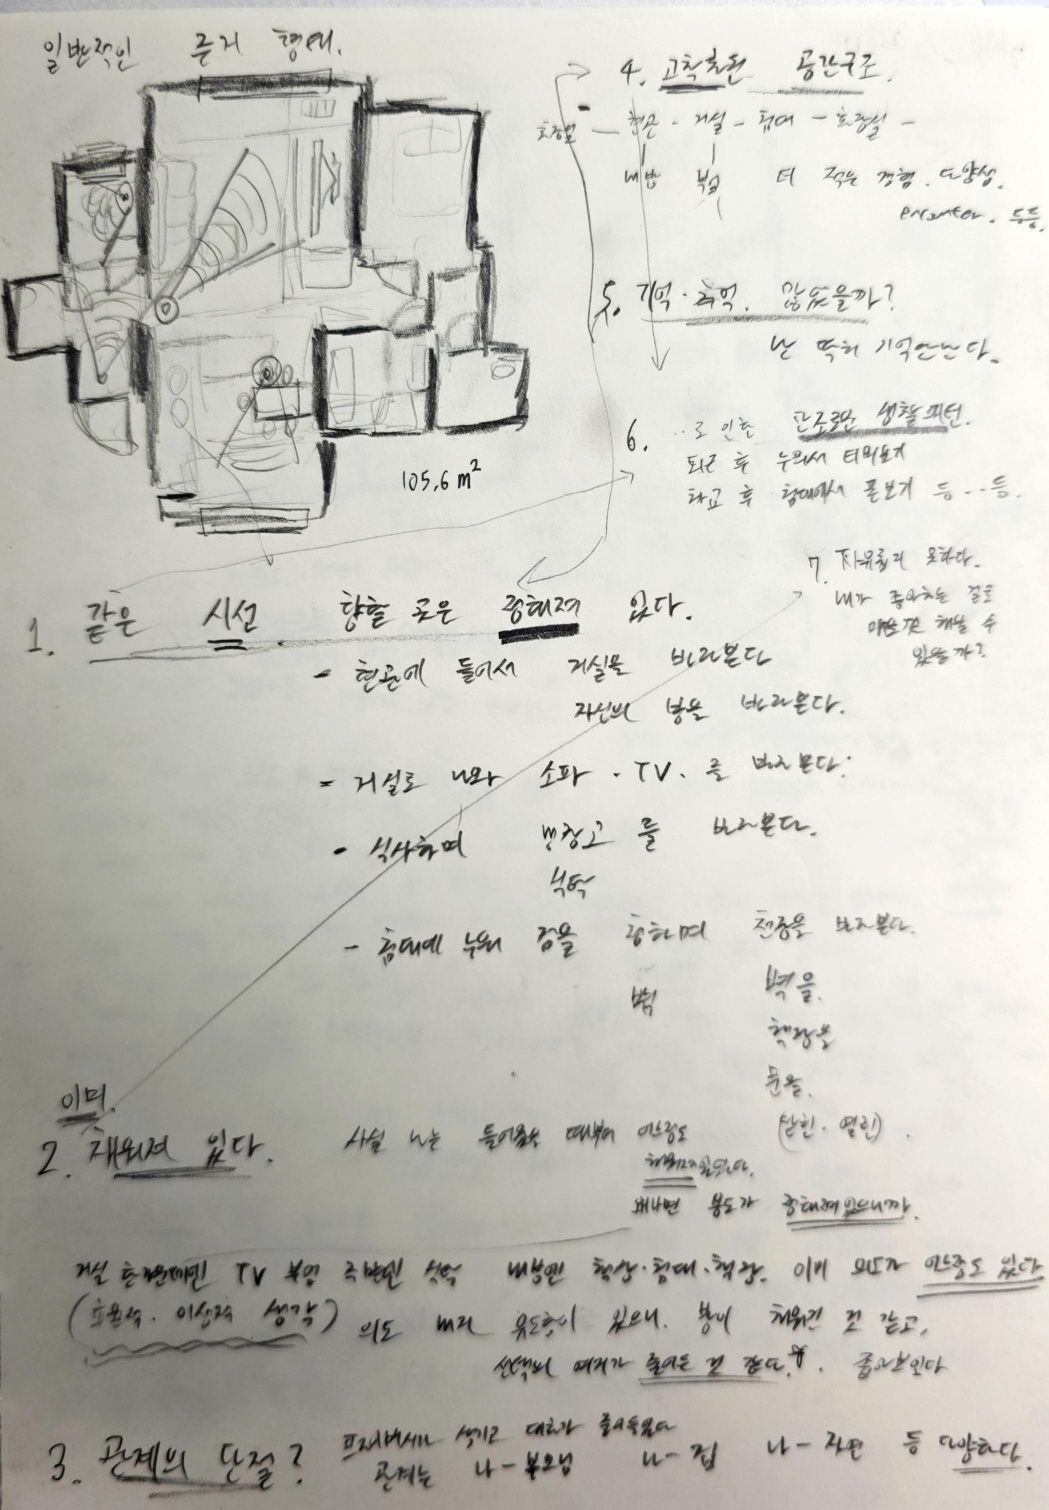 일반적인 주거 형태.
105.6 m²
1. 같은 시선. 향할 곳은 정해져 있다.
- 현관에 들어서 거실을 바라본다
자신의 방을 바라본다.
- 거실로 나와 소파 · TV · 를 바라본다.
- 식사하며 냉장고를 바라본다.
식탁
- 침대에 누워 잠을 청하며 천장을 바라본다.
벽을.
책장을
문을.
(닫힌 · 열린).
이미.
2. 채워져 있다.
사실 나는 들어올 때부터 어느정도
채워져있었다.
왜냐면 용도가 정해져있으니까.
거실 TV 부엌 식탁 내방엔 책상·침대·책장. 이미 의도가 어느정도 있다
(효율적. 이성적 생각)
의도 따라 유도함이 있으니. 방이 채워진 것 같고,
선택의 여지가 줄어든 것 같다. 좁아보인다
3. 관계의 단절?
생기고 대화가 줄어들었다
관계는 나 - 부모님 나 - 집 나 - 자연 등 다양하다.
4. 고착화된 공간구조.
현관 - 거실 - 침대 - 화장실 -
내방 부엌
더 적은 경험. 다양성.
encounter. 등등.
5. 기억·추억. 많았을까?
난 딱히 기억안난다.
6. ..로 인한 단조로운 생활패턴.
퇴근 후 누워서 티비보기
하교 후 침대에서 폰보기 등...등.
7. 자유롭지 못하다.
내가 좋아하는 걸로
채울 수
있을까?